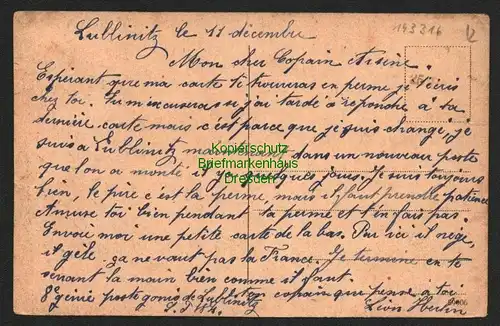 Lublinitz le 11 décembre
193316
12
Mon cher Copain Arsène.
Espérant que ma carte te trouveras en perme je t'écris
chez toi. Tu m'excuseras si j'ai tardé a répondre à ta
dernière carte mais c'est parce que je suis changé, je
suis a Lublinitz maintenant dans un nouveau poste
que l'on a monté il y a quelques jours. Je suis toujours
bien, le pire c'est la perme, mais il faut prendre patience
Amuse toi bien pendant ta perme et t'en fais pas.
Envoi moi une petite carte de la bas. Par ici il neige,
il gèle ça ne vaut pas la France. Je termine en te
serrant la main bien comme il faut.
8e génie poste gonio de Lublinitz copain qui pense a toi
Léon
Kopierschutz
Briefmarkenhaus
Dresden